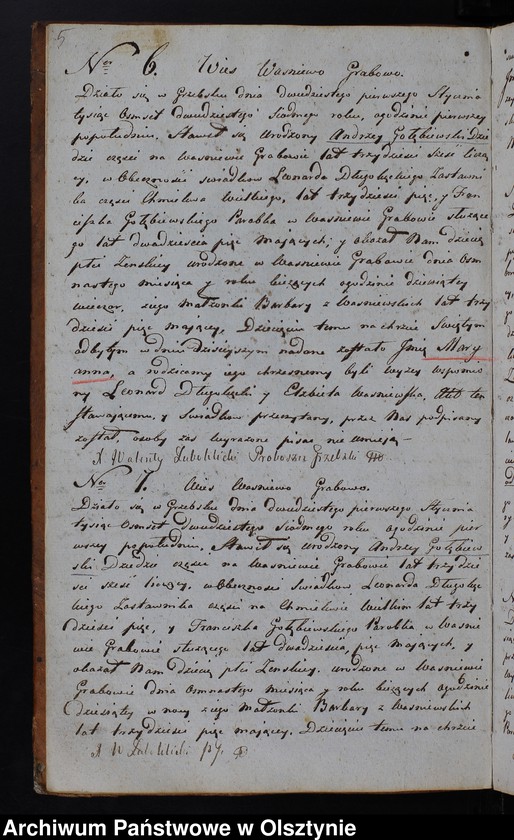 5
Nro 6. Wies Wasniewo Grabowo.
Działo się w Grzebsku dnia dwudziestego pierwszego Stycznia
tysiąc osmset dwudziestego siodmego roku, o godzinie pierwszy
popołudniu, Stawił się urodzony Andrzey Gołębiewski Dzie
dzic częsci na Wasniewie Grabowie lat trzydziesci szesć liczą
cy, w Obecnosci swiadkow Leonarda Długołęckiego Zastawni
ka częsci Chmielewa Wielkiego, lat trzydziesci pięc, y Fran
ciszka Gołębiewskiego Parobka w Wasniewie Grabowie służące
go lat dwadziescia pięc mających; y okazał Nam dziecię
płci Zenskiey urodzone w Wasniewie Grabowie dnia osm
nastego miesiąca y roku bieżących o godzinie dziewiątey
wieczor, z iego małzonki Barbary z Wasniewskich lat trzy
dziesci pięc maiący, Dziecięciu temu na chrzcie Swiętym
odbytym w dniu dzisieyszym nadane zostało Jmię Mary
anna, a rodzicami iego chrzesnemi byli wyzey wspomnio
ny Leonard Długołęcki y Elzbieta Wasniewska, Akt ten
stawaiącemu, y Swiadkom przeczytany, przez Nas podpisany
został, osoby zas wyrażone pisać nie umieią —
X Walenty Proboszcz Grzebski
Nro 7. Wies Wasniewo Grabowo.
Działo się w Grzebsku dnia dwudziestego pierwszego Stycznia
tysiąc osmset dwudziestego siodmego roku o godzinie pier
wszy popołudniu, Stawił się urodzony Andrzey Gołębiew
ski Dziedzic częsci na Wasniewie Grabowie lat trzydzie
sci szesć liczący, w Obecnosci Swiadkow Leonarda Długołę
ckiego Zastawnika częsci na Chmielewie Wielkim lat trzy
dziesci pięc, y Franciszka Gołębiewskiego Parobka w Wasnie
wie Grabowie służącego lat dwadziescia pięc maiących, y
okazał Nam dziecię płci Zenskiey, urodzone w Wasniewie
Grabowie dnia osmnastego miesiąca y roku bieżących o godzinie
dziesiątey w nocy z iego małzonki Barbary z Wasniewskich
lat trzydziesci pięc maiącey, Dziecięciu temu na chrzcie
X W
Archiwum Państwowe w Olsztynie